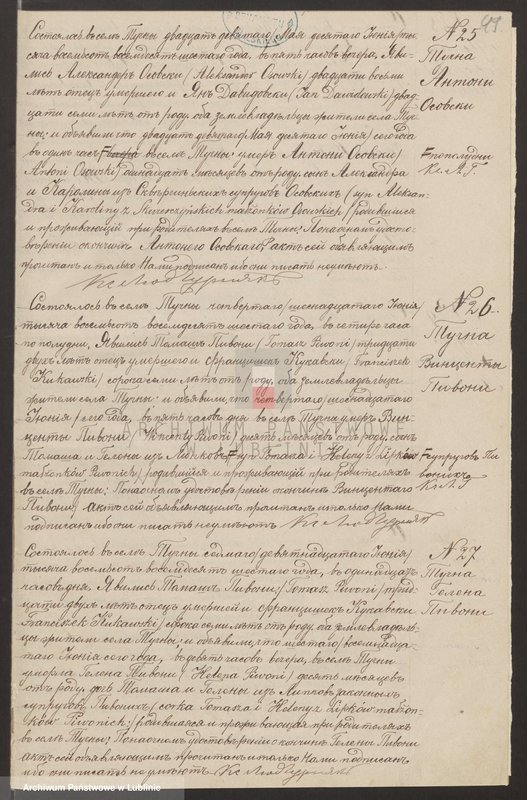 49
Состоялось въ селѣ Тучны двадцать девятаго Мая десятаго Іюня/ ты-
сяча восемьсотъ восемдесятъ шестаго года, въ пять часовъ вечера, Яви-
лись Александръ Осовски /Aleksander Osowski/ двадцати восьми
лѣтъ отецъ умершаго и Янъ Давидовски /Jan Dawidowski/ двад-
цати семи лѣтъ отъ роду, оба земловладѣльцы жители села Туч-
ны, и объявили что двадцать девятаго Мая десятаго Іюня/ сего года
въ одинъ часъ въ селѣ Тучны, умеръ Антони Осовски/
Antoni Osowski/ мѣсяцевъ отъ роду, сынъ Александра
и Каролины изъ супруговъ Осовскихъ /syn Aleksan-
dra i Karoliny z małżonków Osowskich/ родившійся
и проживающій при родителяхъ въ селѣ Тучны. По настоящемъ удосто-
вѣреніи о кончинѣ Антонего Осовскаго, актъ сей объявляющимъ
прочитанъ и только Нами подписанъ ибо они писать неумѣютъ.
№ 25
Тучна
Антони
Осовски
пополудни
Состоялось въ селѣ Тучны четвертаго /шестнадцатаго Іюня/
тысяча восемьсотъ восемдесятъ шестаго года, въ четыре часа
по полудни, Явились Томашъ Пивони /Tomasz Piwoni/ тридцати
двухъ лѣтъ отецъ умершаго и Францишекъ Кукавски /Franciszek
Kukawski/ сорока семи лѣтъ отъ роду, оба земловладѣльцы
жители села Тучны и объявили, что четвертаго /шестнадцатаго
Іюня/ сего года, въ пять часовъ дня въ селѣ Тучна умеръ Вин-
центы Пивони /Wincenty Piwoni/ десять мѣсяцевъ отъ роду, сынъ
Томаша и Гелены изъ Липковъ /syn Tomasza i Heleny z Lipków
małżonków Piwonich/ родившійся и проживающій при родителяхъ
въ селѣ Тучны; По настоящемъ удостовѣреніи о кончинѣ Винцентаго
Пивони, актъ сей объявляющимъ прочитанъ и только Нами
подписанъ ибо они писать неумѣютъ
№ 26
Тучна
Винценты
Пивони
супруговъ Пи-
вонихъ
Состоялось въ селѣ Тучны седмаго /девятнадцатаго Іюня/
тысяча восемьсотъ восемдесятъ шестаго года, въ одинадцать
часовъ дня, Явились Томашъ Пивони /Tomasz Piwoni/ трид-
цати двухъ лѣтъ отецъ умершей и Францишекъ Кукавски
Franciszek Kukawski/ сорока семи лѣтъ отъ роду, оба земловладѣль-
цы жители села Тучны, и объявили, что шестаго /восемнадца-
таго Іюня сего года, въ девять часовъ вечера, въ селѣ Тучны
умерла Гелена Пивони /Helena Piwoni/ десять мѣсяцевъ
отъ роду, дочь Томаша и Гелены изъ Липковъ законныхъ
супруговъ Пивонихъ /córka Tomasza i Heleny z Lipków małżon-
ków Piwonich/ родившаяся и проживающая при родителяхъ
въ селѣ Тучны; По настоящемъ удостовѣреніи о кончинѣ Гелены Пивони
актъ сей объявляющимъ прочитанъ и только Нами подписанъ
ибо они писать неумѣютъ
№ 27
Тучна
Гелена
Пивони
ARCHIWUM PAŃSTWOWE
W LUBLINIE
Archiwum Państwowe w Lublinie